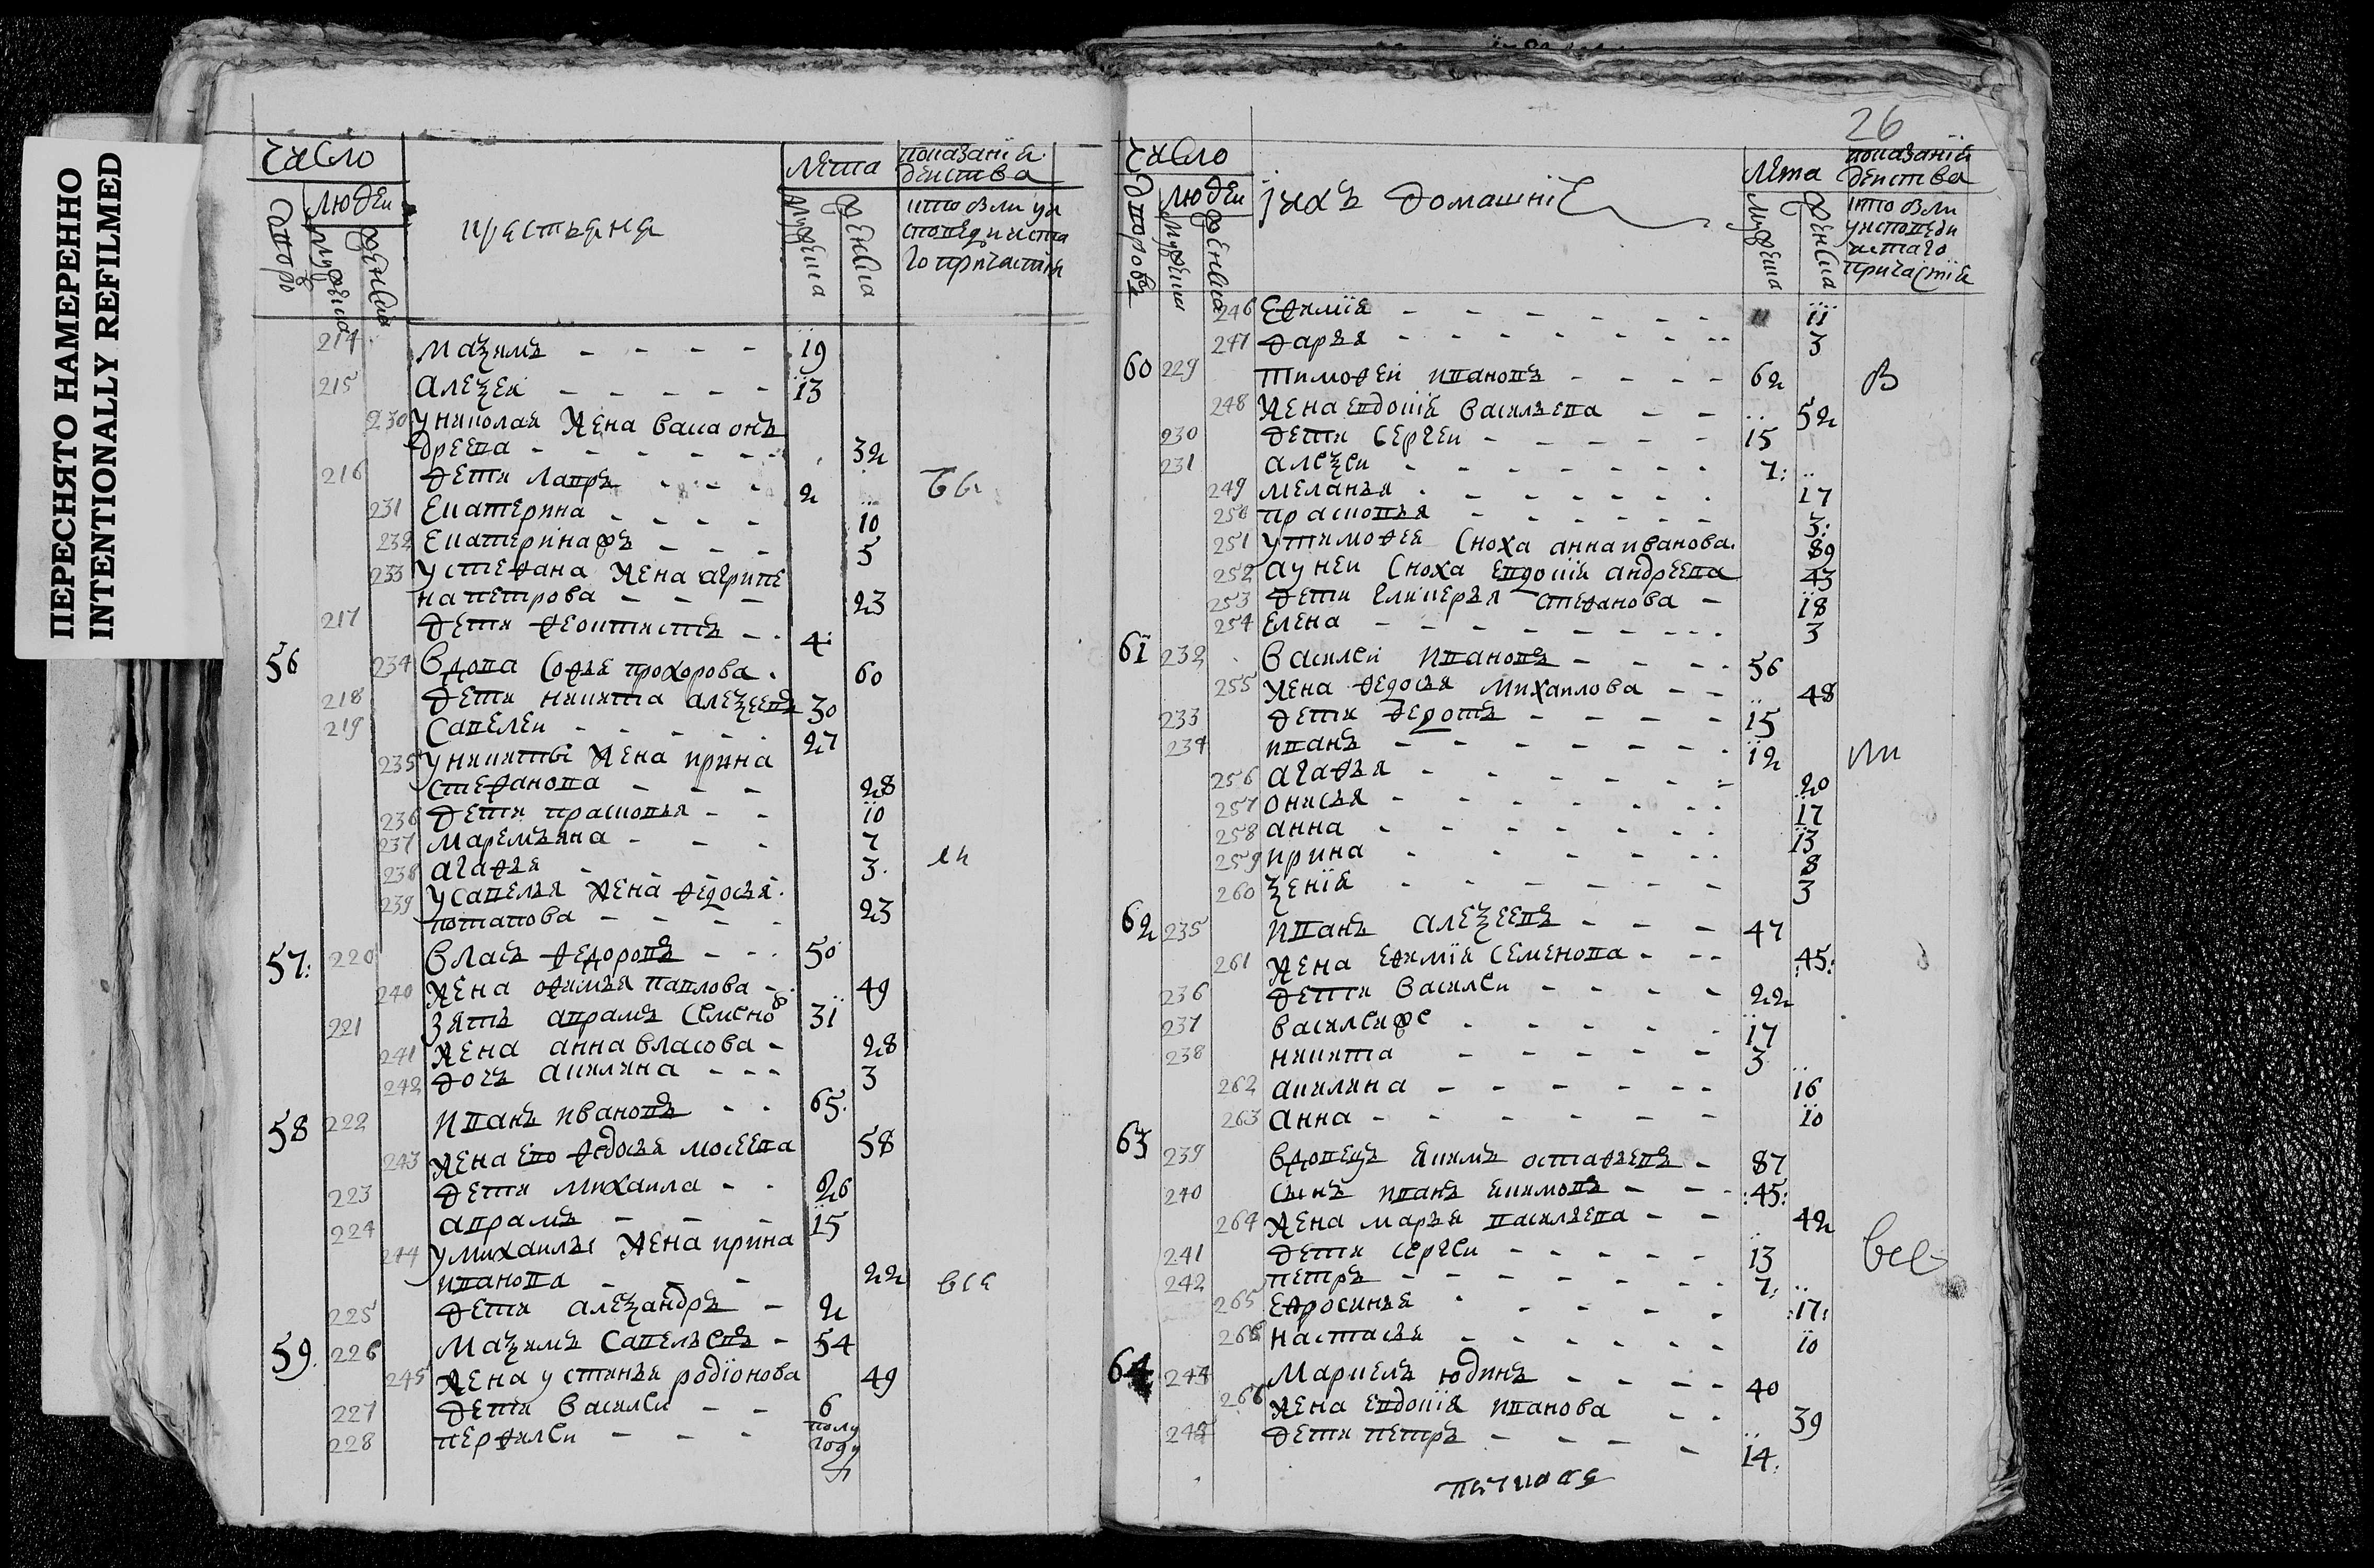 ПЕРЕСНЯТО НАМЕРЕННО
INTENTIONALLY REFILMED
число
людеи
двора
мужеска
женска
крестьяня
лѣта
мужеска
женска
показанiя
деиства
кто были уи
споведи и свята
го причастiя
214 Маѯимъ - - - - 19
215 алеѯеи - - - - - 13
230 у николая жена васа онъ
дреева - - - - - - 32
216 дети лавръ - - - 2
бы
231 Екатерина - - - - 10
232 Екатерiнажъ - - - 5
233 у стефана жена агрипе
на петрова - - - 23
217 дети феоктистъ - - 4:
56 234 вдова софья прохорова . 60
218 дети никита алеѯеевъ 30
219 савелеи - - - - - 27
235 у никиты жена ирина
стефанова - - - 28
236 дети прасковья - - 10
237 маремьяна - - - 7
238 агафья - - - - 3.
ли
239 у савелья жена федосья
потапова - - - - 23
57: 220 власъ федоровъ - - - 50
240 жена офимья павлова - 49
221 зять аврамъ семено 31
241 жена анна власова - 28
242 дочь акилина - - - 3
58 222 иванъ ивановъ - - 65.
243 жена ево федосья мосеева 58
223 дети михаила - - 26
224 аврамъ - - - 15
244 у михаилы жена ирина
иванова - - - 22
вся
225 дети алеѯандръ - 2
59. 226 Маѯимъ савельевъ - 54
245 жена устинья родiонова 49
227 дети василеи - - 6
228 перфилеи - - - полу
году
26
число
людеи
дворовъ
мужеска
женска
iихъ домашнiе
лѣта
мужеска
женска
показанiи
деиства
кто были
у исповеди
и стаго
причастiя
246 Ефимiя - - - - - - - 11
247 дарья - - - - - - - - 3
60 229 тимофеи ивановъ - - - - 62
в
248 жена евдокiя васильева - - 52
230 дети сергеи - - - - - 15
231 алеѯеи - - - - - - - 7:
249 меланья . - - - - - . 17
250 прасковья - - - - - - 3:
251 у тимофея сноха анна иванова. 89
252 а у неи сноха евдокiя андреева 43
253 дети гликерья стефанова - 18
254 елена - - - - - - - - - . 3
61 232 василеи ивановъ - - - - 56
255 жена федосья михаилова - - 48
233 дети федотъ - - - - - 15
234 иванъ - - - - - - - . 12
ли
256 агафья - - - - - - - 20
257 онисья - - - - - - - . 17
258 анна - - - - - - - . 13
259 ирина - - - - - - - 8
260 ѯенiя - - - - - - - 3
62 235 иванъ алеѯеевъ - - - - 47
261 жена ефимiя семенова - - - :45:
236 дети василеи - - - - - 22
237 василеиже - - - - - . 17
238 никита - - - - - 3
262 акилина - - - - - - - 16
263 анна - - - - - - - 10
63 239 вдовецъ якимъ остафьевъ - 87
240 сынъ иванъ якимовъ - - - :45:
264 жена марья васильева - - 42
241 дети сергеи - - - - - 13
все
242 петръ - - - - - - - - 7:
265 Ефросинья - - - - - :17:
266 настасья - - - - - - 10
64 244 Маркелъ юдинъ - - - - 40
266 жена евдокiя иванова - - 39
248 дети петръ - - - - - 14: